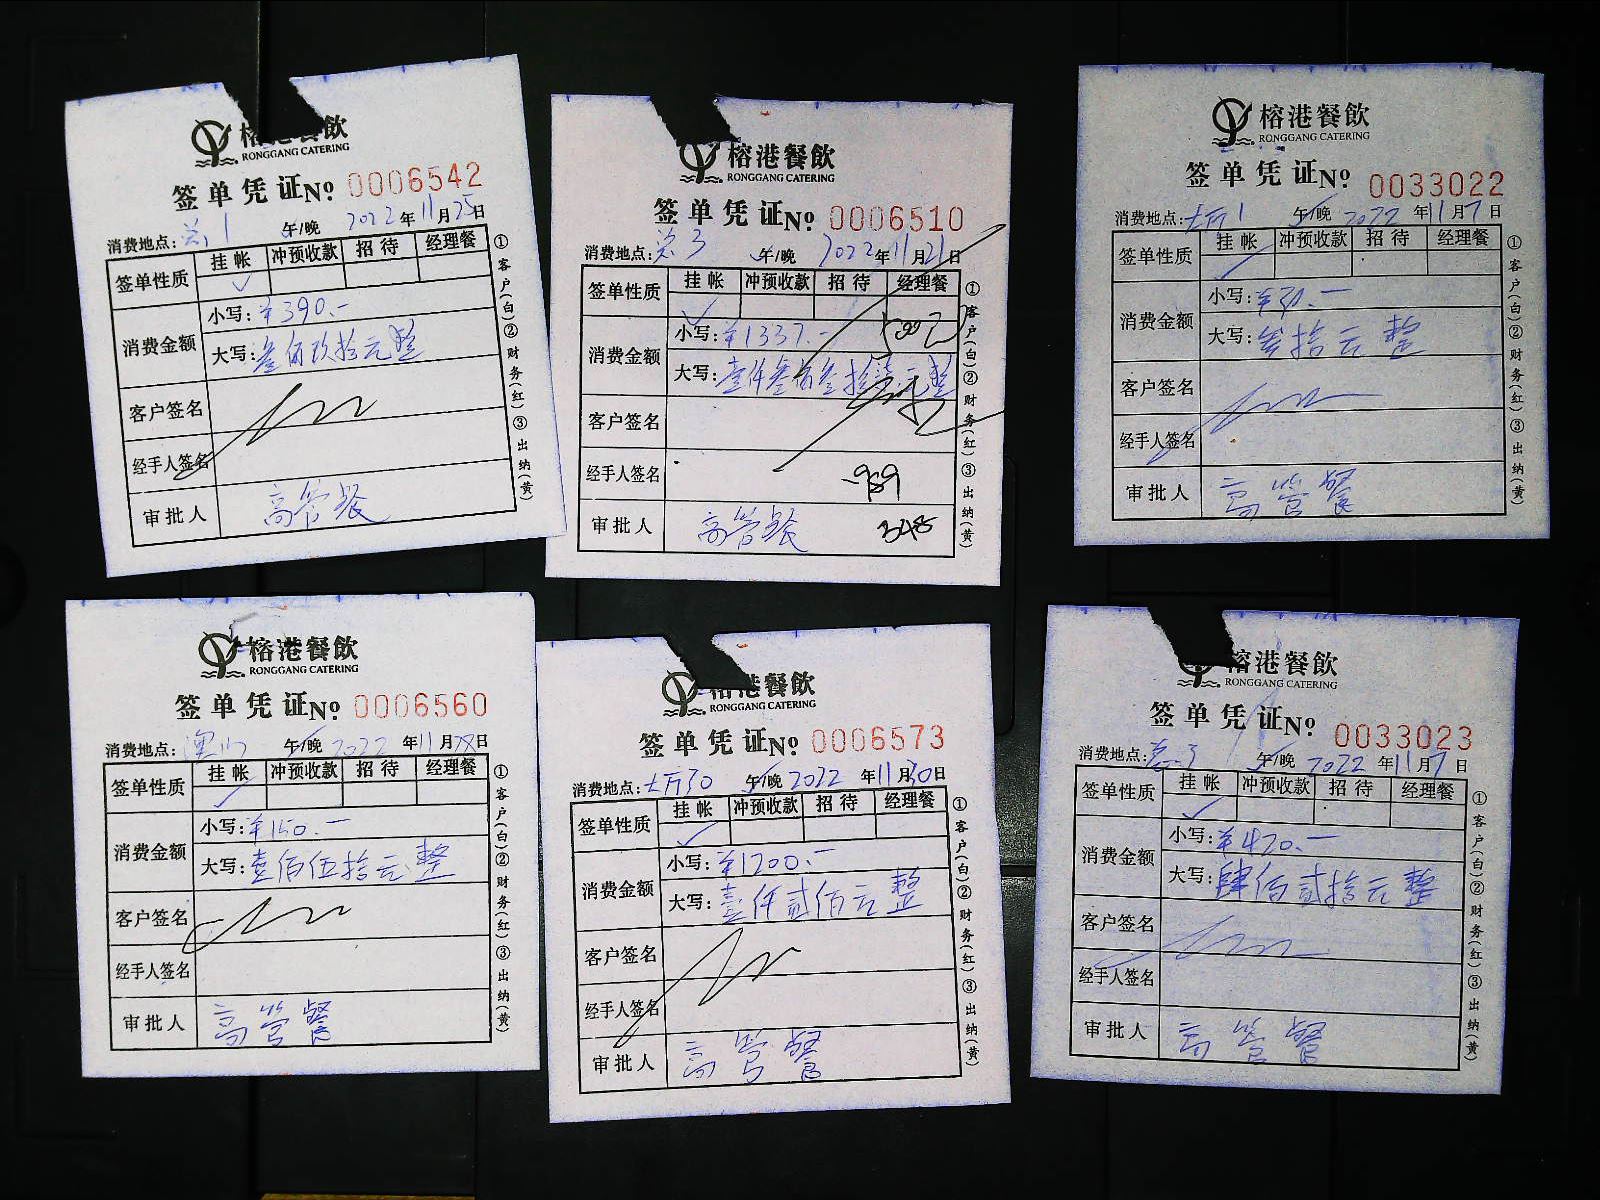 榕港餐飲
RONGGANG CATERING
签单凭证No 0006542
消费地点: 1 午/晚 2022年11月25日
签单性质 挂帐 冲预收款 招待 经理餐
消费金额 小写:¥390.-
大写:叁佰玖拾元整
客户签名
经手人签名
审批人 高管餐
①客户(白)②财务(红)③出纳(黄)
榕港餐飲
RONGGANG CATERING
签单凭证No 0006510
消费地点: 3 午/晚 2022年11月21日
签单性质 挂帐 冲预收款 招待 经理餐
消费金额 小写:¥1337.-
大写:壹仟叁佰叁拾柒元整
客户签名
经手人签名 -989
审批人 高管餐 348
①客户(白)②财务(红)③出纳(黄)
榕港餐飲
RONGGANG CATERING
签单凭证No 0033022
消费地点:大厅1 午/晚 2022年11月7日
签单性质 挂帐 冲预收款 招待 经理餐
消费金额 小写:¥30.-
大写:叁拾元整
客户签名
经手人签名
审批人 高管餐
①客户(白)②财务(红)③出纳(黄)
榕港餐飲
RONGGANG CATERING
签单凭证No 0006560
消费地点: 午/晚 2022年11月28日
签单性质 挂帐 冲预收款 招待 经理餐
消费金额 小写:¥150.-
大写:壹佰伍拾元整
客户签名
经手人签名
审批人 高管餐
①客户(白)②财务(红)③出纳(黄)
榕港餐飲
RONGGANG CATERING
签单凭证No 0006573
消费地点:大厅30 午/晚 2022年11月30日
签单性质 挂帐 冲预收款 招待 经理餐
消费金额 小写:¥1200.-
大写:壹仟贰佰元整
客户签名
经手人签名
审批人 高管餐
①客户(白)②财务(红)③出纳(黄)
榕港餐飲
RONGGANG CATERING
签单凭证No 0033023
消费地点: 3 午/晚 2022年11月7日
签单性质 挂帐 冲预收款 招待 经理餐
消费金额 小写:¥420.-
大写:肆佰贰拾元整
客户签名
经手人签名
审批人 高管餐
①客户(白)②财务(红)③出纳(黄)